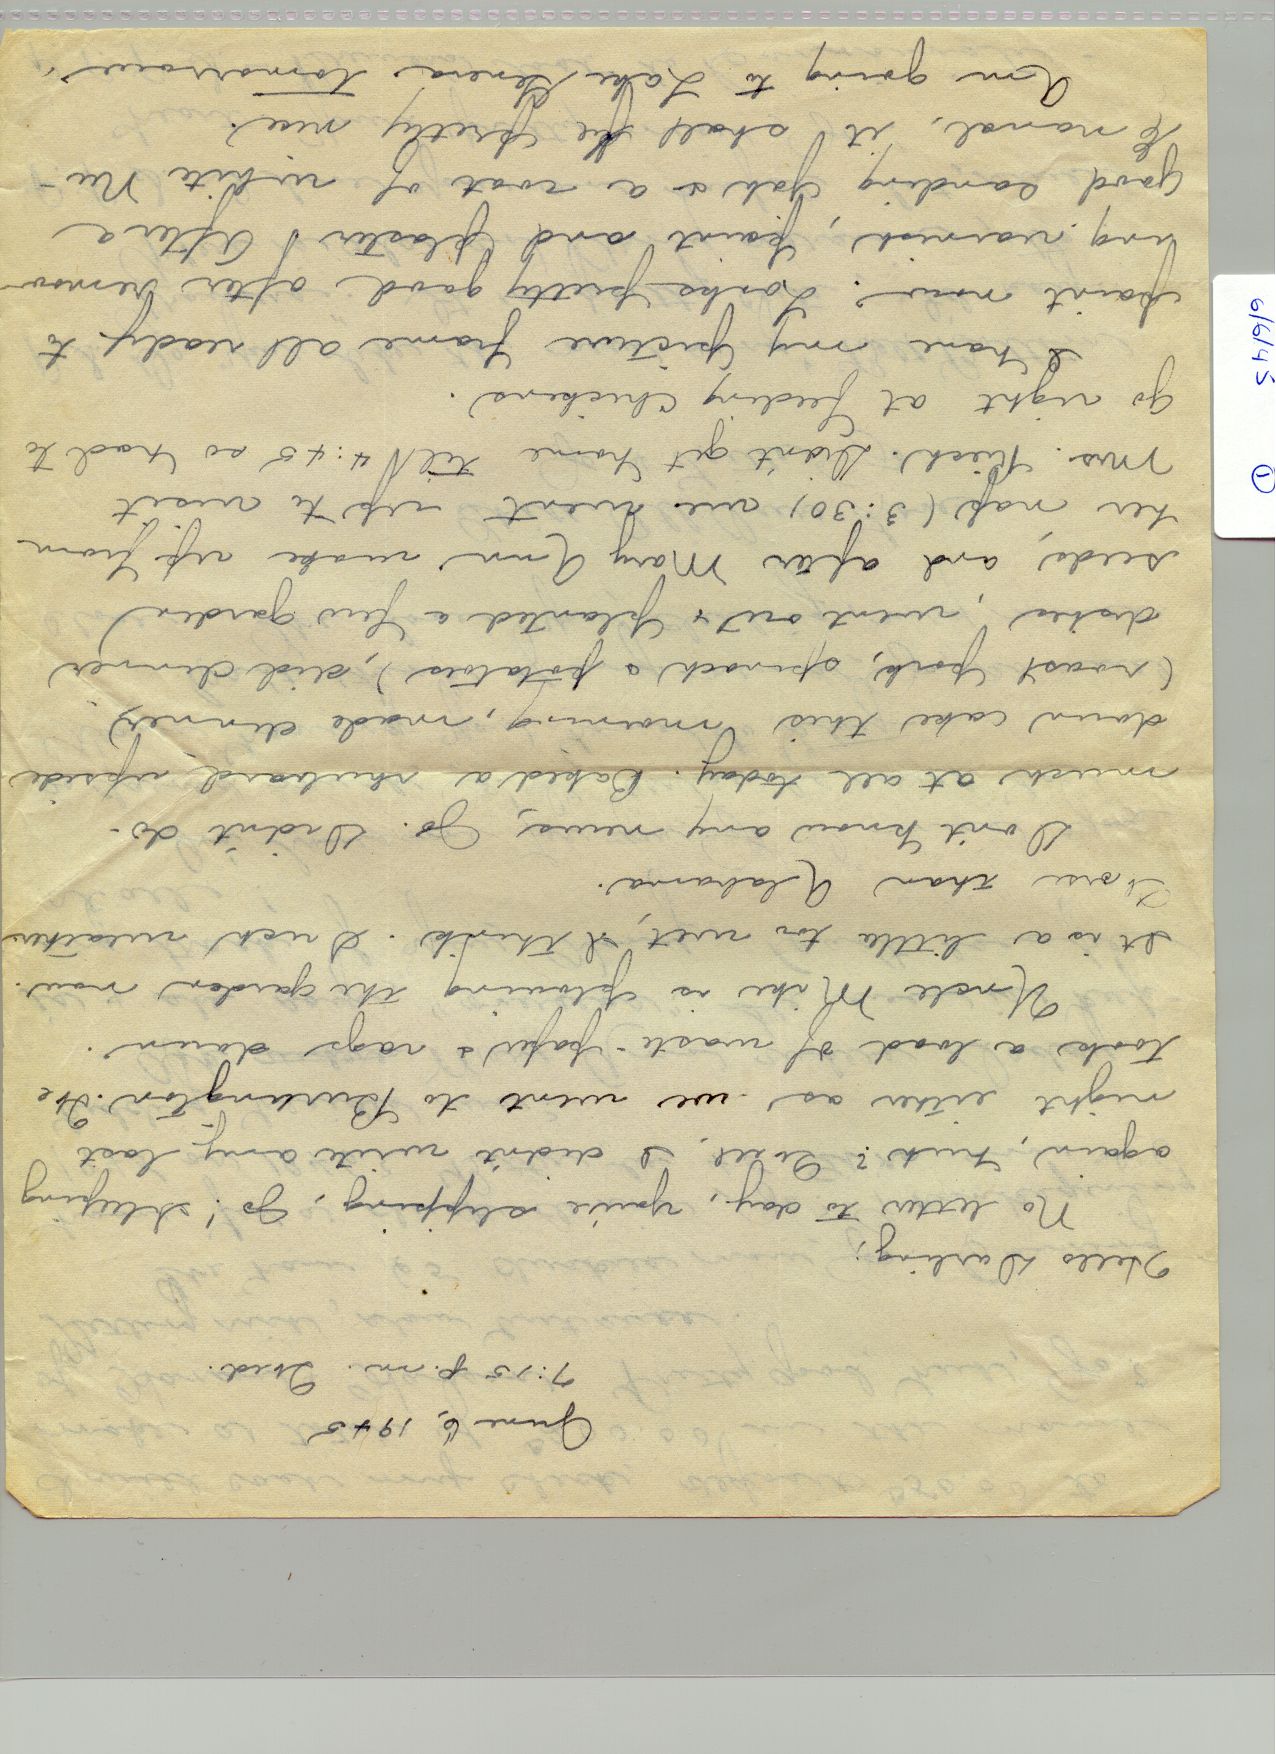 June 6, 1945
7:15 p.m. Wed.
Hello Darling;
No letter to day, you're slipping, Jo! Sleeping
again, huh? Well, I didn't write any last
night either as we went to Burlington. We
took a load of waste-paper & rags down.
Uncle Mike is plowing the garden now.
It is a little too wet, I think. Such weather.
Worse than Alabama.
Don't know any news, Jo. Didn't do
much at all today. Baked a rhubarb upside
down cake this morning, made dinner
(roast pork, spinach & potatoes), did dinner
dishes, went out & planted a few garden
seeds, and after Mary Ann woke up from
her nap (3:30) we went up to visit
Mrs. Didn't get home till 4:45 so had to
go right at feeding chickens.
I have my picture frame all ready to
paint now. Looks pretty good after remov-
ing varnish, paint and plaster! After a
good sanding job & a coat of white Nu-
Enamel, it shall be pretty nice.
Am going to Lake Geneva tomorrow,
6/6/45
1